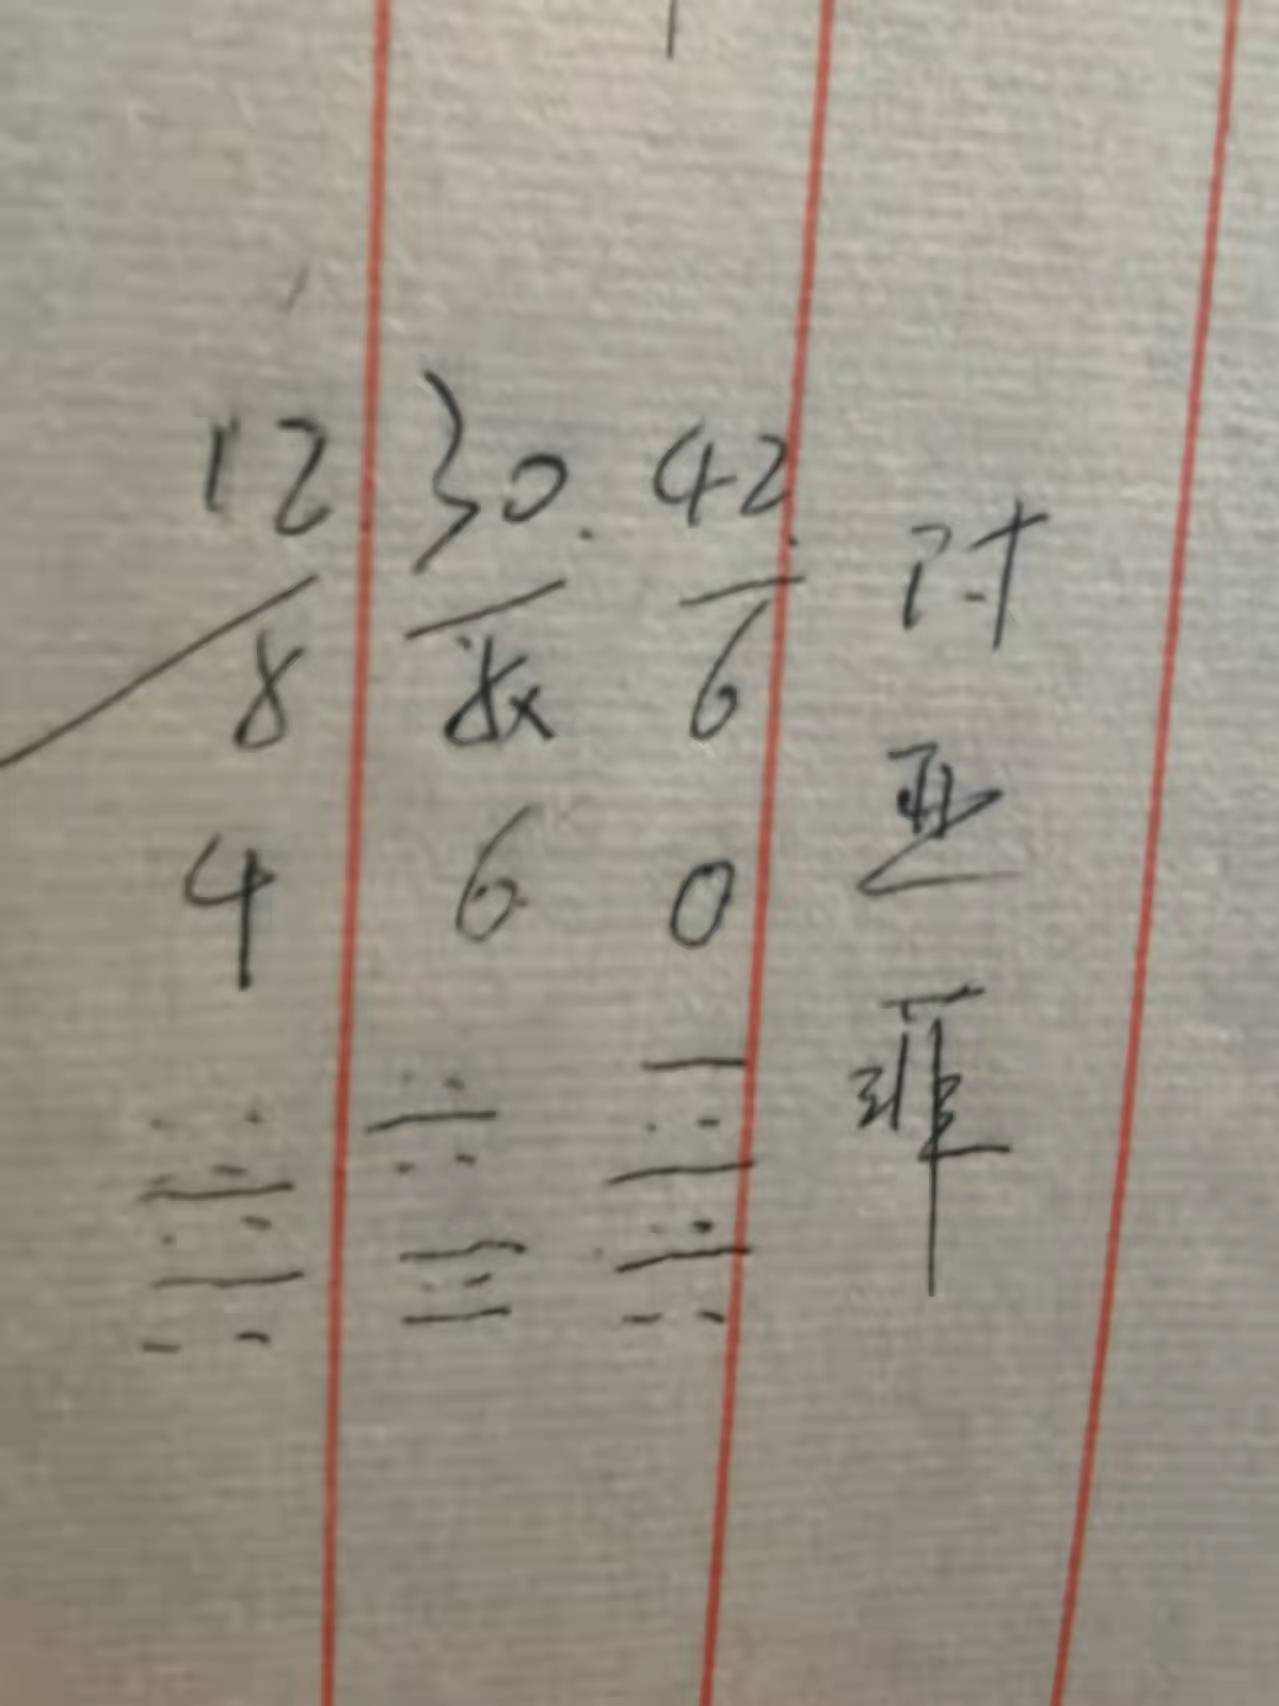 12 30. 42.
8 8x 6
4 6 0
计
亚